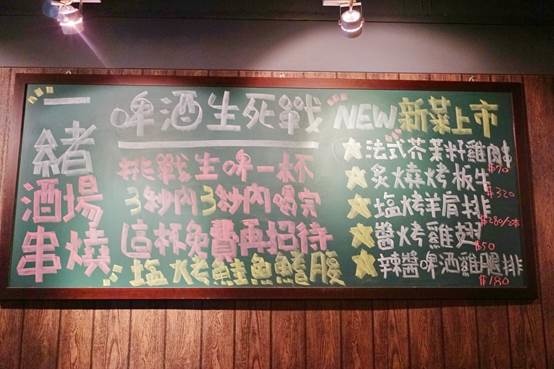 一緒
酒場
串燒
啤酒生死戰
挑戰生啤一杯
3秒內3秒內喝完
這杯免費再招待
塩烤鮭魚鰭腹
NEW新菜上市
法式芥茉籽雞肉
$90
炙燒烤板牛
$320
塩烤羊肩排
$280/2本
醬烤雞翅
$50
辣醬啤酒雞腿排
$180